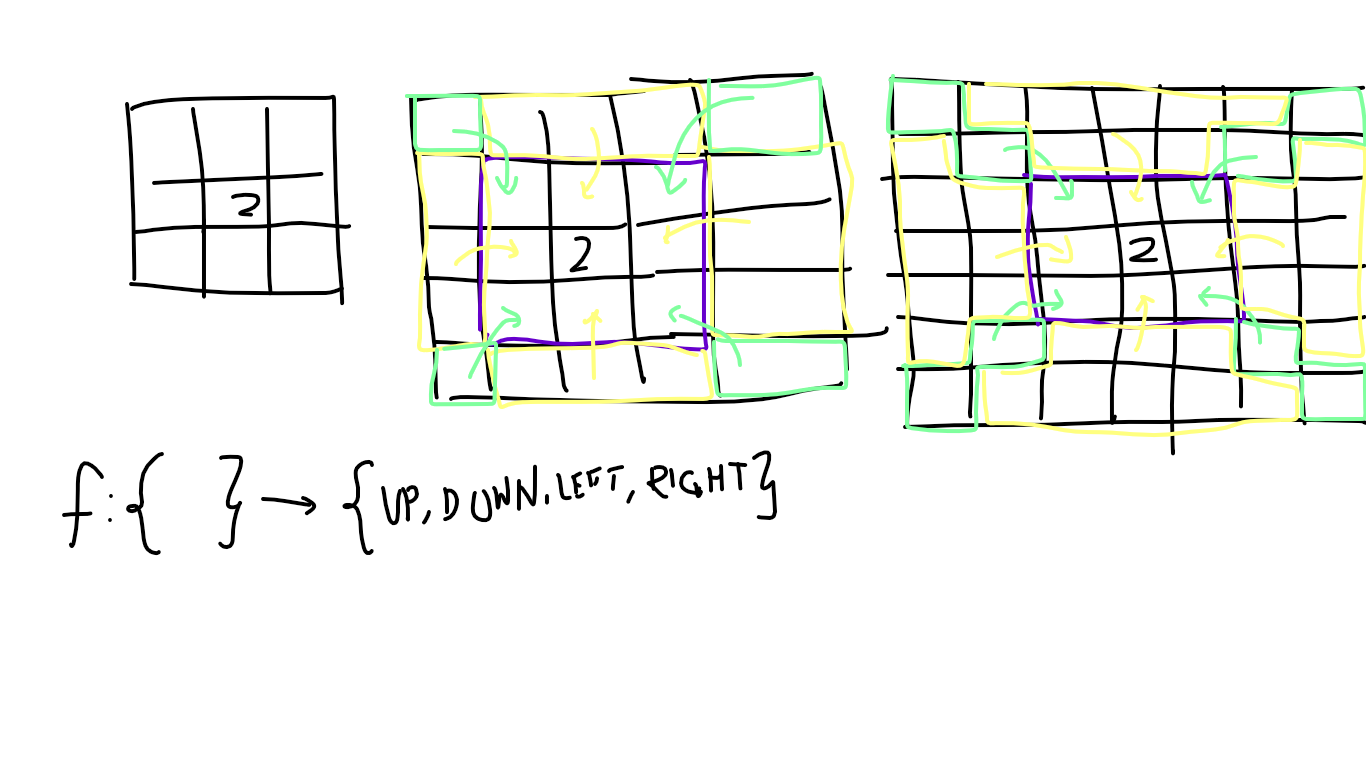 2 2 2
f:{ } → {UP, DOWN, LEFT, RIGHT}